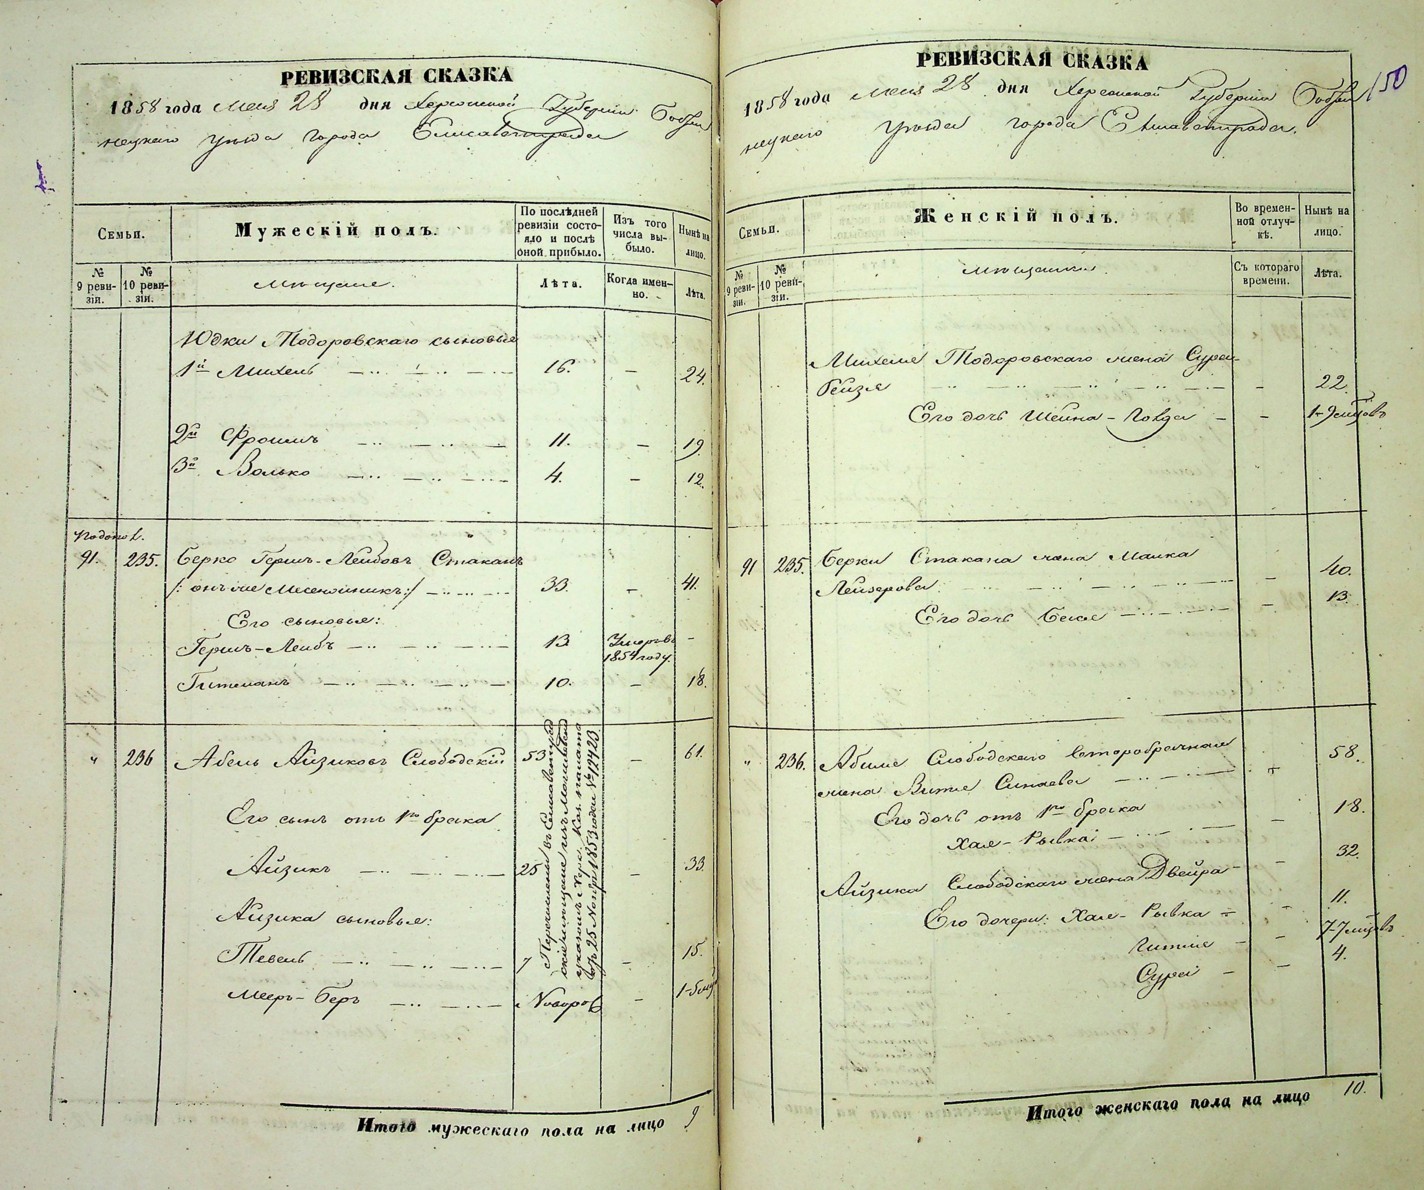 РЕВИЗСКАЯ СКАЗКА
1858 года Мая 28 дня Херсонской Губерніи Бобри
нецкаго Уѣзда города Елисаветграда
Семьи.
Мужескій полъ.
По послѣдней ревизіи состояло и послѣ оной прибыло.
Изъ того числа выбыло.
Нынѣ на лицо.
№ 9 ревизіи.
№ 10 ревизіи.
Мѣщане.
Лѣта.
Когда именно.
Лѣта.
Юдки Тодоровскаго сыновья
1й Михель 16. — 24.
2й Фроимъ 11. — 19.
3й Волько 4. — 12.
91. 235. Берко Гершъ-Лейбовъ Стаканъ
/: онъ же :/ 33. — 41.
Его сыновья:
Гершъ-Лейбъ 13 Умеръ въ 1854 году. -
Гительманъ 10. — 18.
" 236 Абель Айзиковъ Слободскій 53 — 61.
Его сынъ отъ 1го брака
Айзикъ 25 — 33.
Айзика сыновья:
Тевель 7 — 15.
Мееръ-Беръ Новорож
Перечислены въ Елисаветград
скіе мѣщане изъ
указомъ Херс. Каз. палаты
отъ 25 Нояб. 1853 года № 19420.
Итого мужескаго пола на лицо 9
РЕВИЗСКАЯ СКАЗКА
150
1858 года Мая 28 дня Херсонской Губерніи Бобри
нецкаго Уѣзда города Елисаветграда.
Семьи.
Женскій полъ.
Во временной отлучкѣ.
Нынѣ на лицо.
№ 9 ревизіи.
№ 10 ревизіи.
Мѣщанки.
Съ котораго времени.
Лѣта.
Михеля Тодоровскаго жена Сура-
Рейзя — 22
Его дочь Шейна-Ховда — 1-9 мѣцовъ
91 235. Берки Стакана жена Малка
Лейзерова — 40.
Его дочь Бася — 13.
" 236. Абеля Слободскаго второбрачная
жена Витя — 58.
Его дочь отъ 1го брака
Хая-Рывка — 18.
Айзика Слободскаго жена Двейра — 32.
Его дочери: Хая-Рывка — 11.
Гитля — 7-7 мѣцовъ
Сура — 4.
Итого женскаго пола на лицо 10.